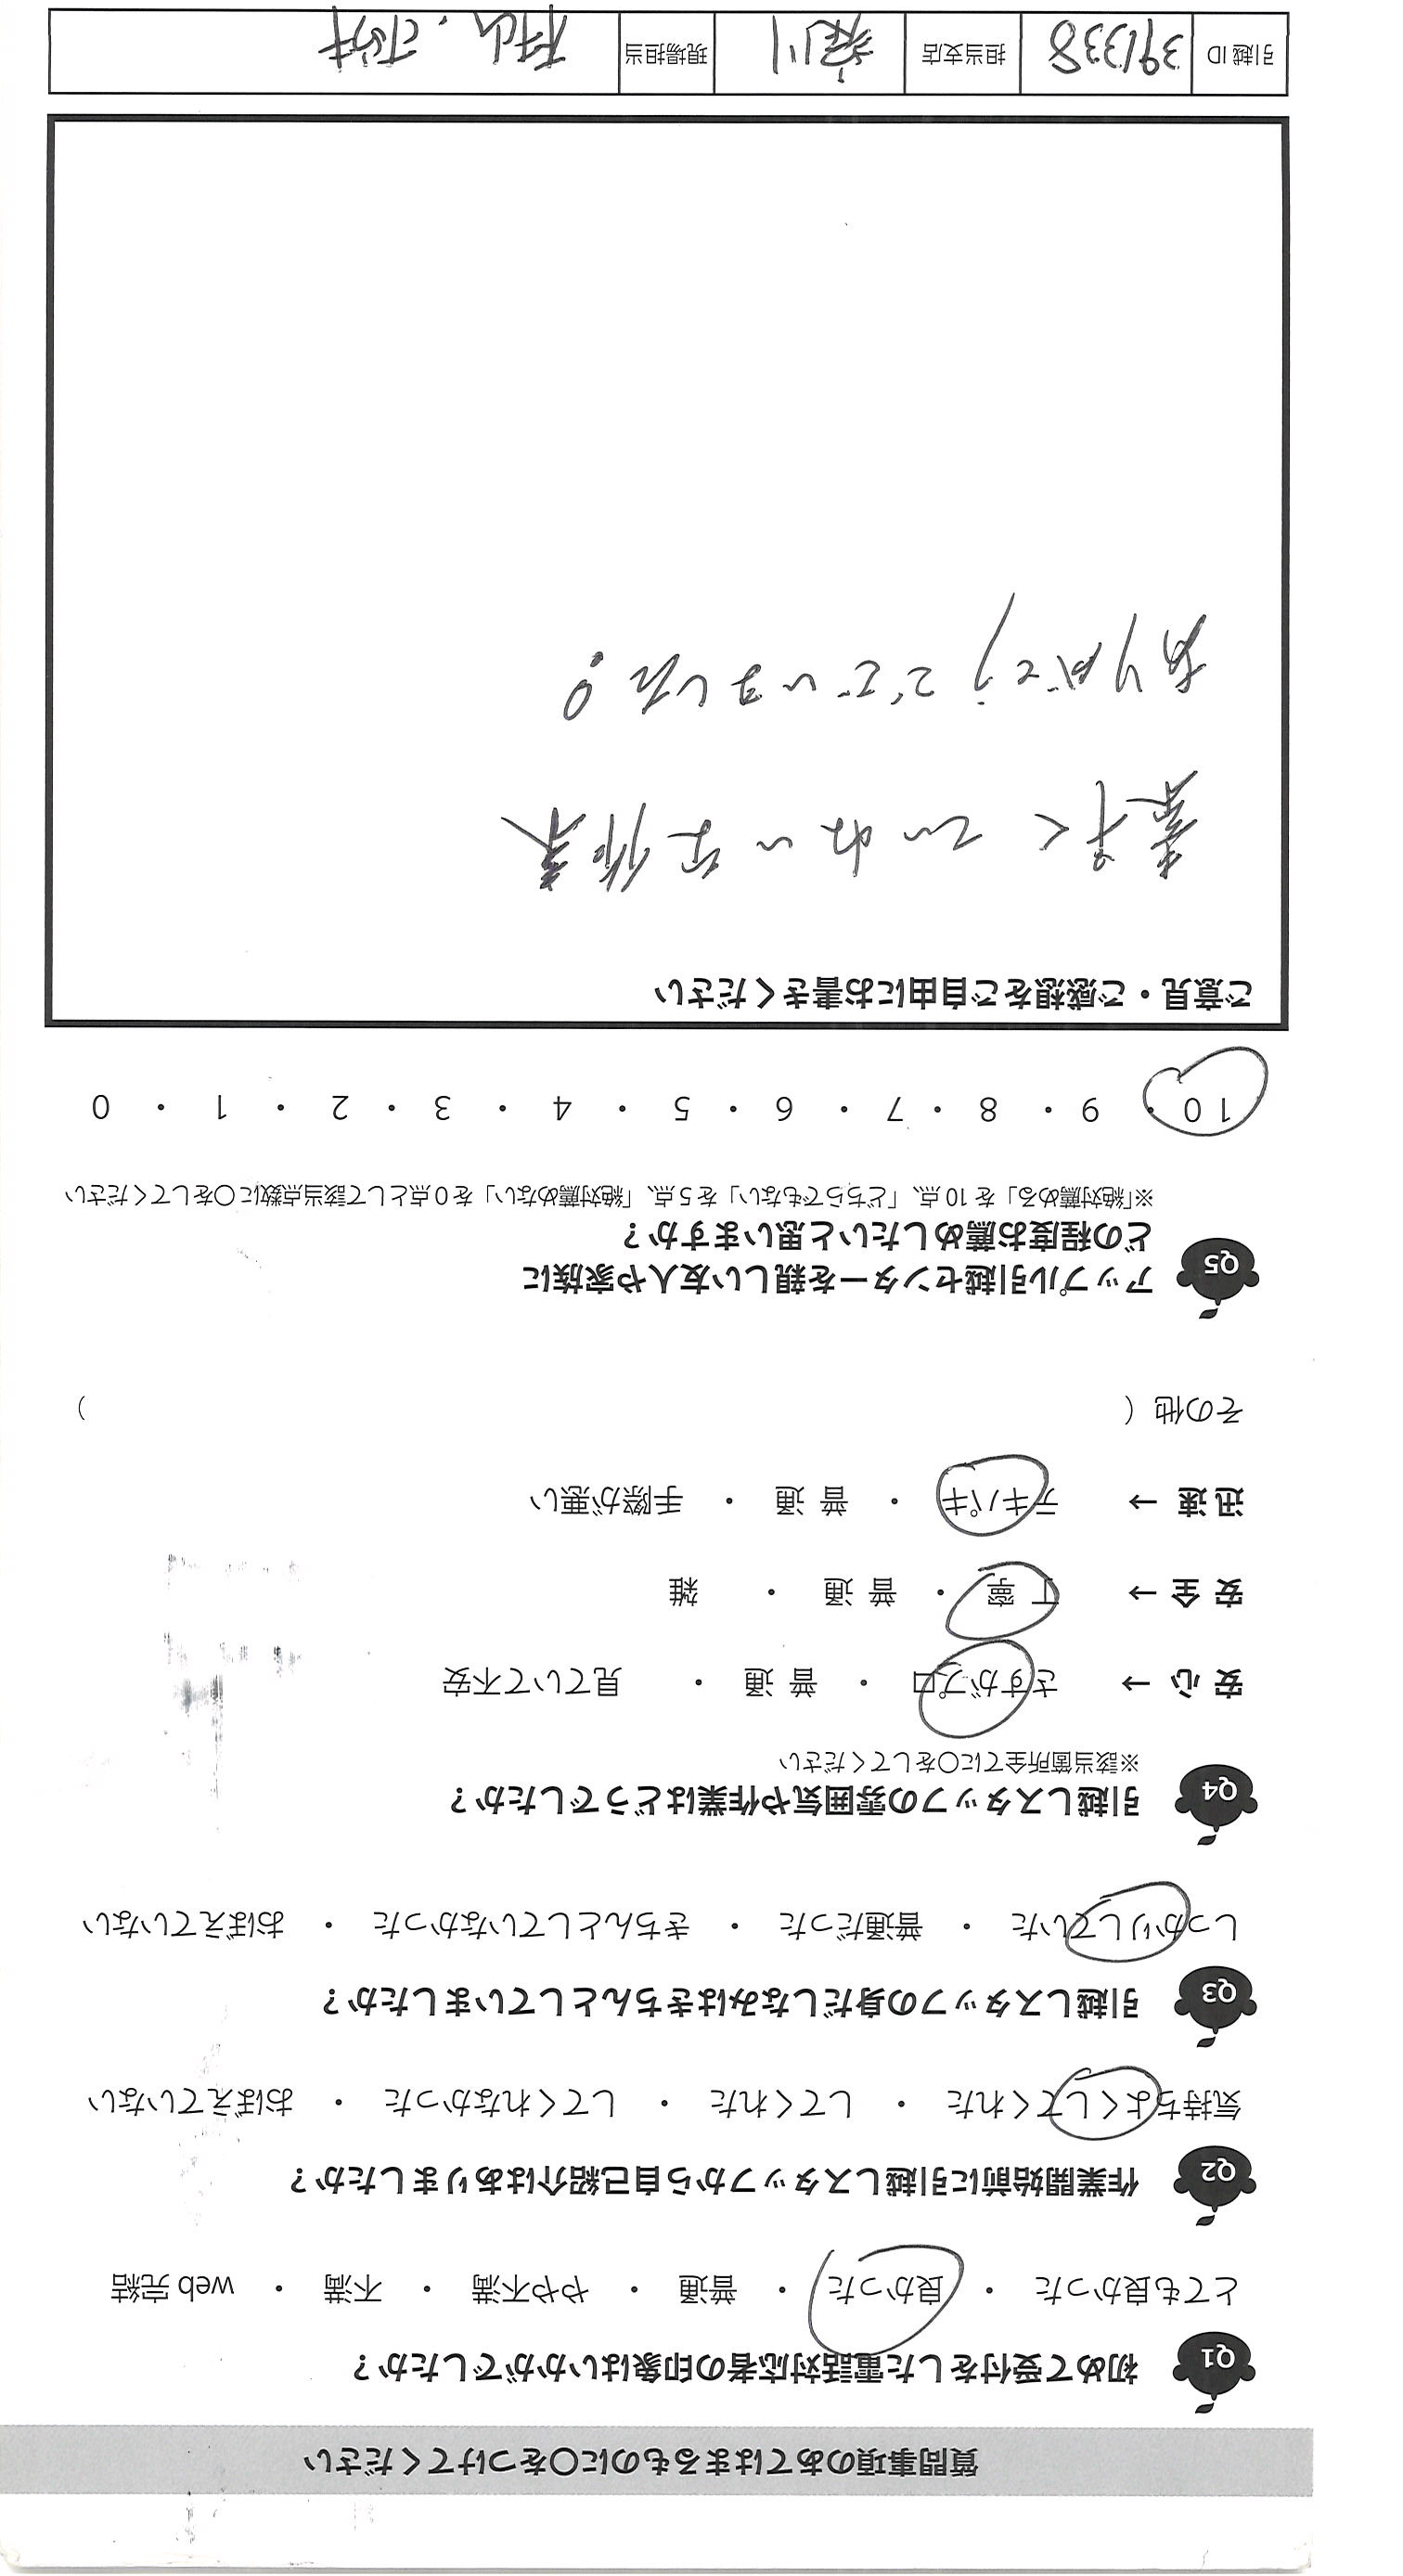 質問事項のあてはまるものに〇をつけてください
Q1 初めて受付をした電話対応者の印象はいかがでしたか？
とても良かった ・ 良かった ・ 普通 ・ やや不満 ・ 不満 ・ web 完結
Q2 作業開始前に引越しスタッフから自己紹介はありましたか？
気持ちよくしてくれた ・ してくれた ・ してくれなかった ・ おぼえていない
Q3 引越しスタッフの身だしなみはきちんとしていましたか？
しっかりしていた ・ 普通だった ・ きちんとしていなかった ・ おぼえていない
Q4 引越しスタッフの雰囲気や作業はどうでしたか？
※該当箇所全てに〇をしてください
安心 → さすがプロ ・ 普通 ・ 見ていて不安
安全 → 丁寧 ・ 普通 ・ 雑
迅速 → テキパキ ・ 普通 ・ 手際が悪い
その他 （ ）
Q5 アップル引越センターを親しい友人や家族に
どの程度お薦めしたいと思いますか？
※「絶対薦める」を 10 点、「どちらでもない」を 5 点、「絶対薦めない」を 0 点として該当点数に〇をしてください
10 ・ 9 ・ 8 ・ 7 ・ 6 ・ 5 ・ 4 ・ 3 ・ 2 ・ 1 ・ 0
ご意見・ご感想をご自由にお書きください
素早くていねいな作業
ありがとうございました！
引越 ID 391338 担当支店 現場担当